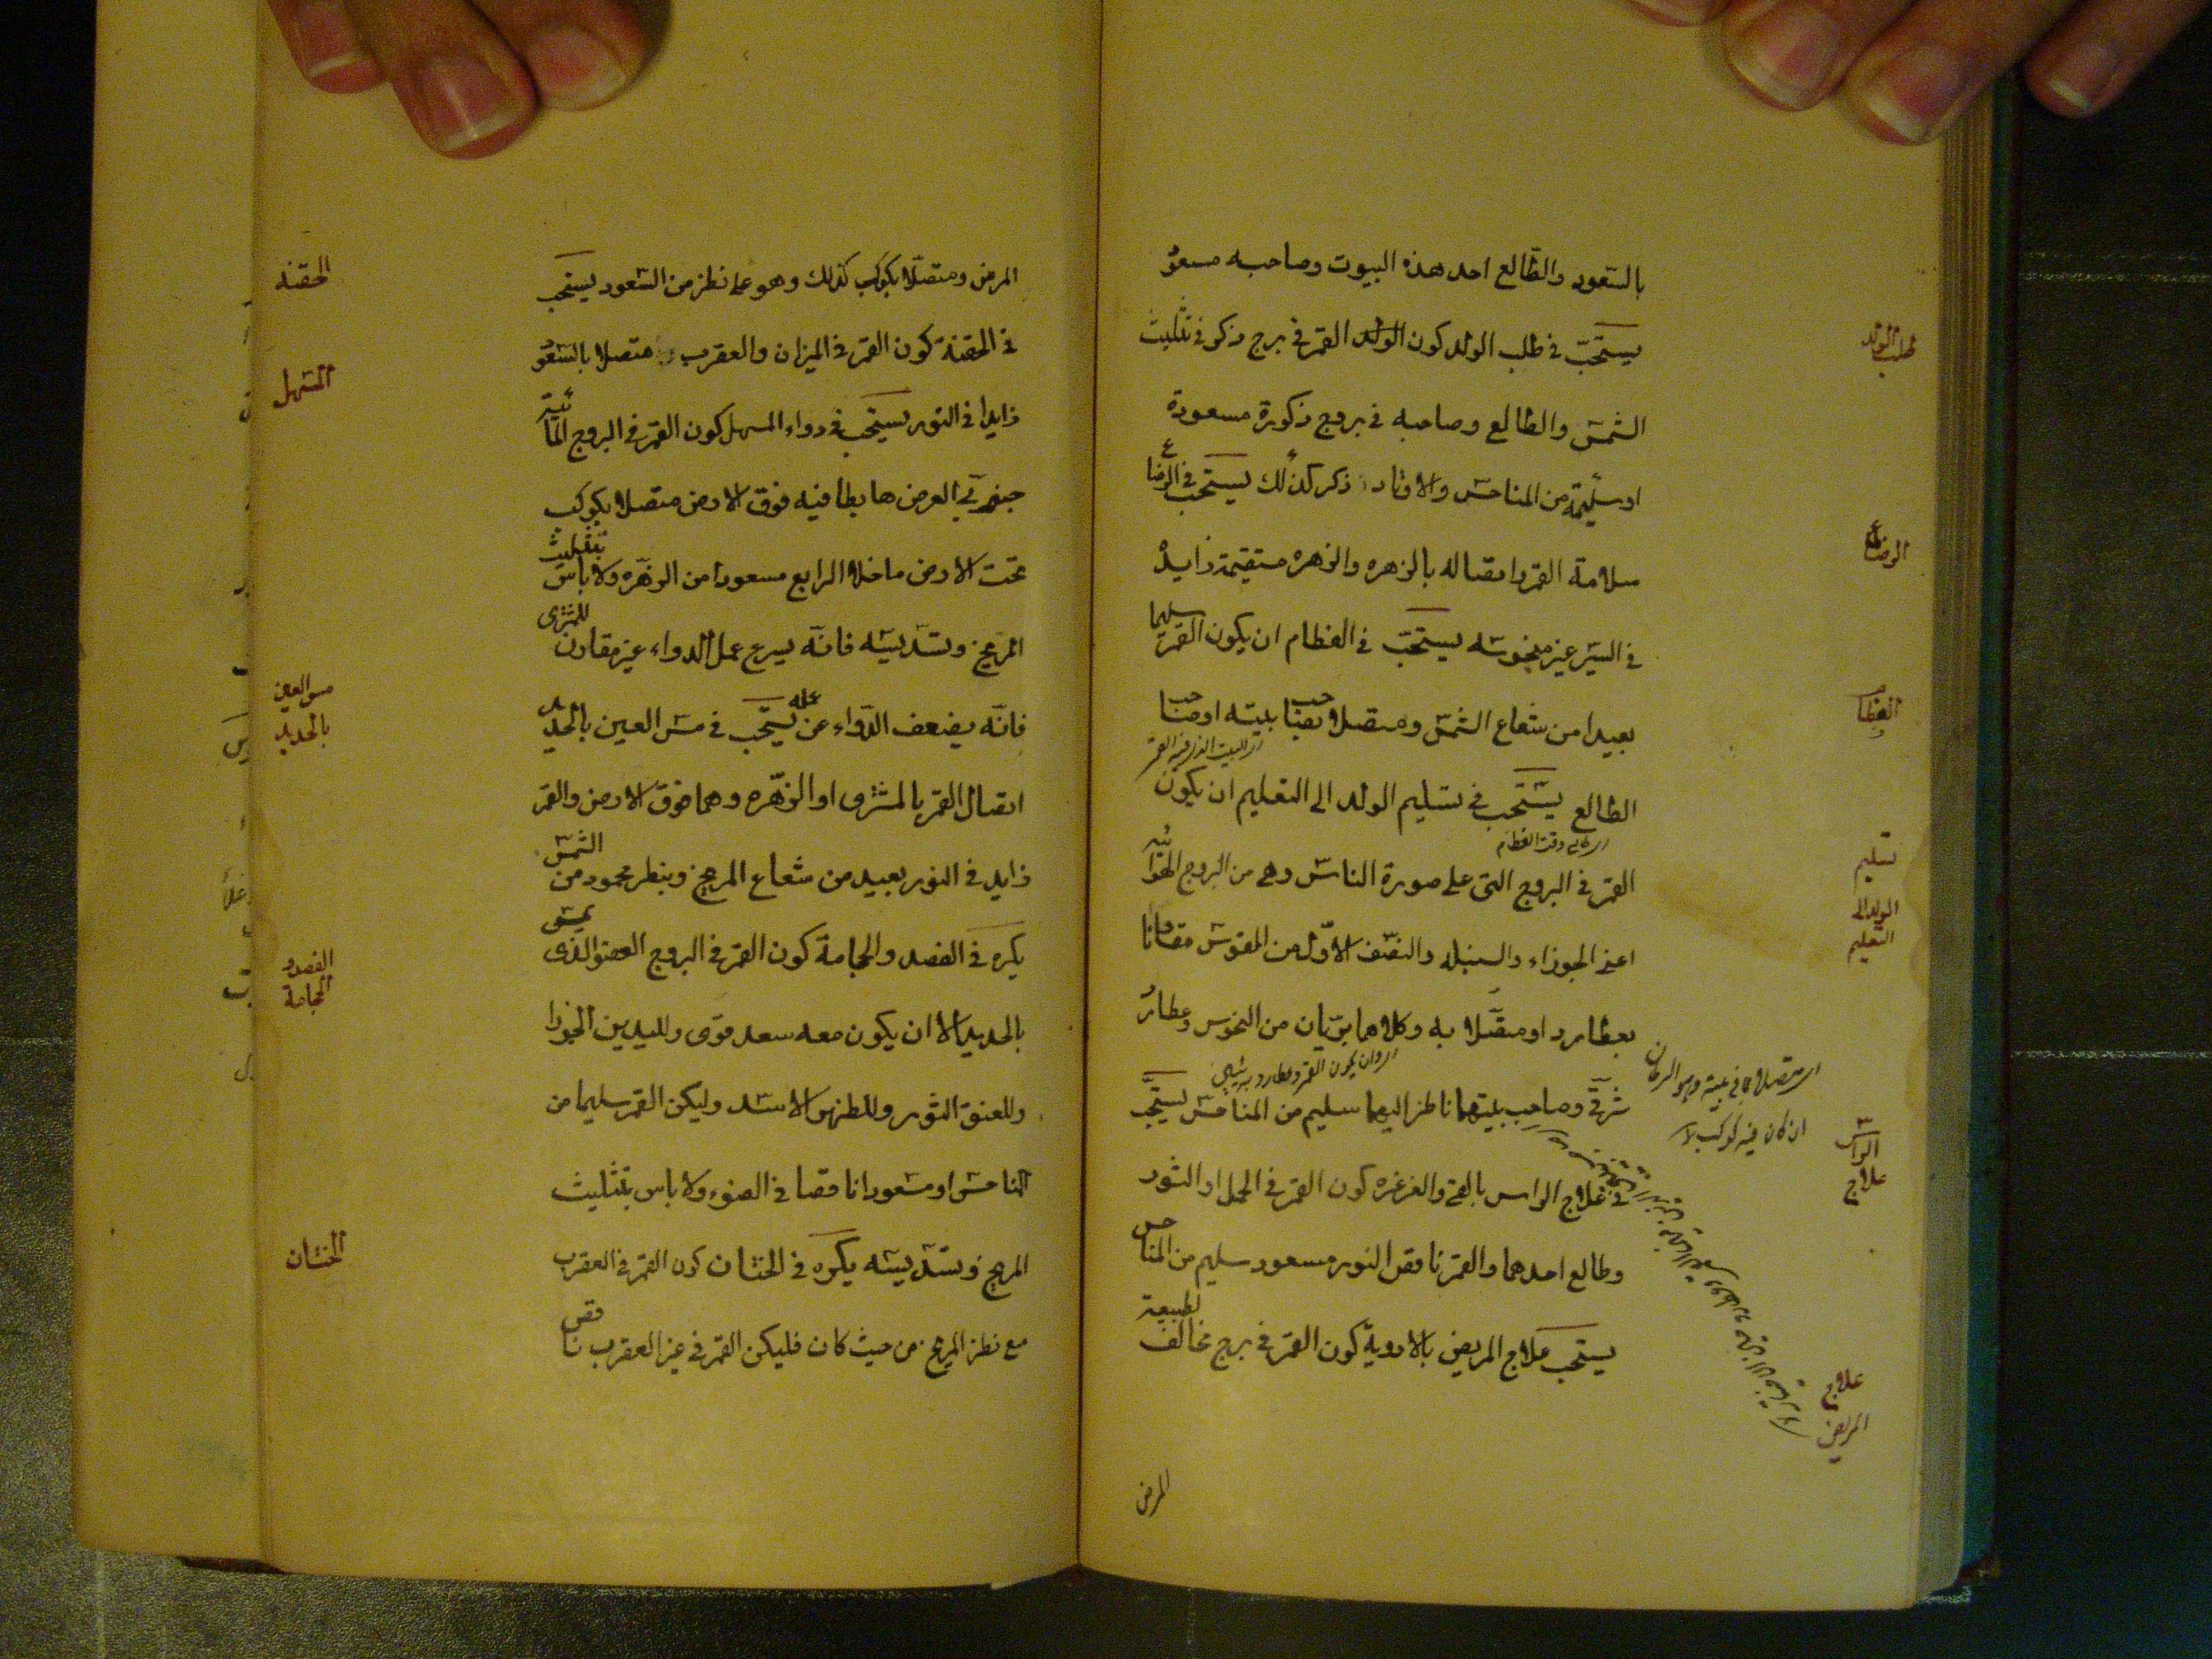 بالسّعود والطّالع احد هذه البيوت وصاحبه مسعوُد
طلب الولد
يستحبّ في طلب الولد كون الولد القمر في برج ذكر في تثليث
الشمس والطالع وصاحبه في بروج ذكورة مسعودة
او سليمة من المناحس والاوتاد ذكر كذلك يستحب في الرضاع
الرضاع
سلامة القمر واتصاله بالزهره والزهره مستقيمة زايدة
في السّير غير منحوسه يستحبّ في الفطام ان يكون القمر سليما
الفطام
بعيدا من شعاع الشمس ومتصلا بصاحب بيته او صاحب
الطالع يستحب في تسليم الولد الى التعليم ان يكون
تسليم
الولد الى
التعليم
القمر في البروج التي على صورة الناس وهي من البروج الهوائية
اعني الجوزاء والسنبله والنصف الاوّل من القوس مقارنا
بعطارد او متصّلا به وكلاهما بريّان من النحوس وعطارد
شرقيّ وصاحب بيتهما ناظر اليهما سليم من المناحس يستحبّ
الراس
علاج
في علاج الراس بالقئ والغرغره كون القمر في الحمل او الثور
وطالع احدهما والقمر ناقص النور مسعود سليم من المناحس
يستحب علاج المريض بالادوية كون القمر في برج مخالف لطبيعة
علاج
المريض
المرض
المرض ومتصّلا بكوكب كذلك وهو على نظر من السّعود يستحب
الحقنه
في الحقنة كون القمر في الميزان والعقرب متصلا بالسّعود
المسهل
زايدا في النور يستحب في دواء المسهل كون القمر في البروج المائية
جنوبي العرض هابطا فيه فوق الارض متصلا بكوكب
تحت الارض ما خلا الرابع مسعودا من الزهّره ولا باس بتثليث
المريخ وتسديسه فانّه يسرع عمل الدواء غير مقارن للمشترى
فانّه يضعف الدّواء عن عمله يستحّب في مسّ العين بالحديد
مس العين
بالحديد
اتصال القمر بالمشترى او الزهّره وهما فوق الارض والقمر
زايد في النور بعيد من شعاع المريخ وبنظر محمود من الشمس
يكره في الفصد والحجامة كون القمر في البروج العضو الذى يمس
الفصد و
الحجامة
بالحديد الا ان يكون معه سعد قوى ولليدين الجوزا
وللعنق الثور وللظهر الاسد وليكن القمر سليما من
المناحس او مسعودا ناقصا في الضوء ولا باس بتثليث
المريخ وتسديسه يكره في الختان كون القمر في العقرب
الختان
مع نظر المريخ من حيث كان فليكن القمر في غير العقرب ناقص